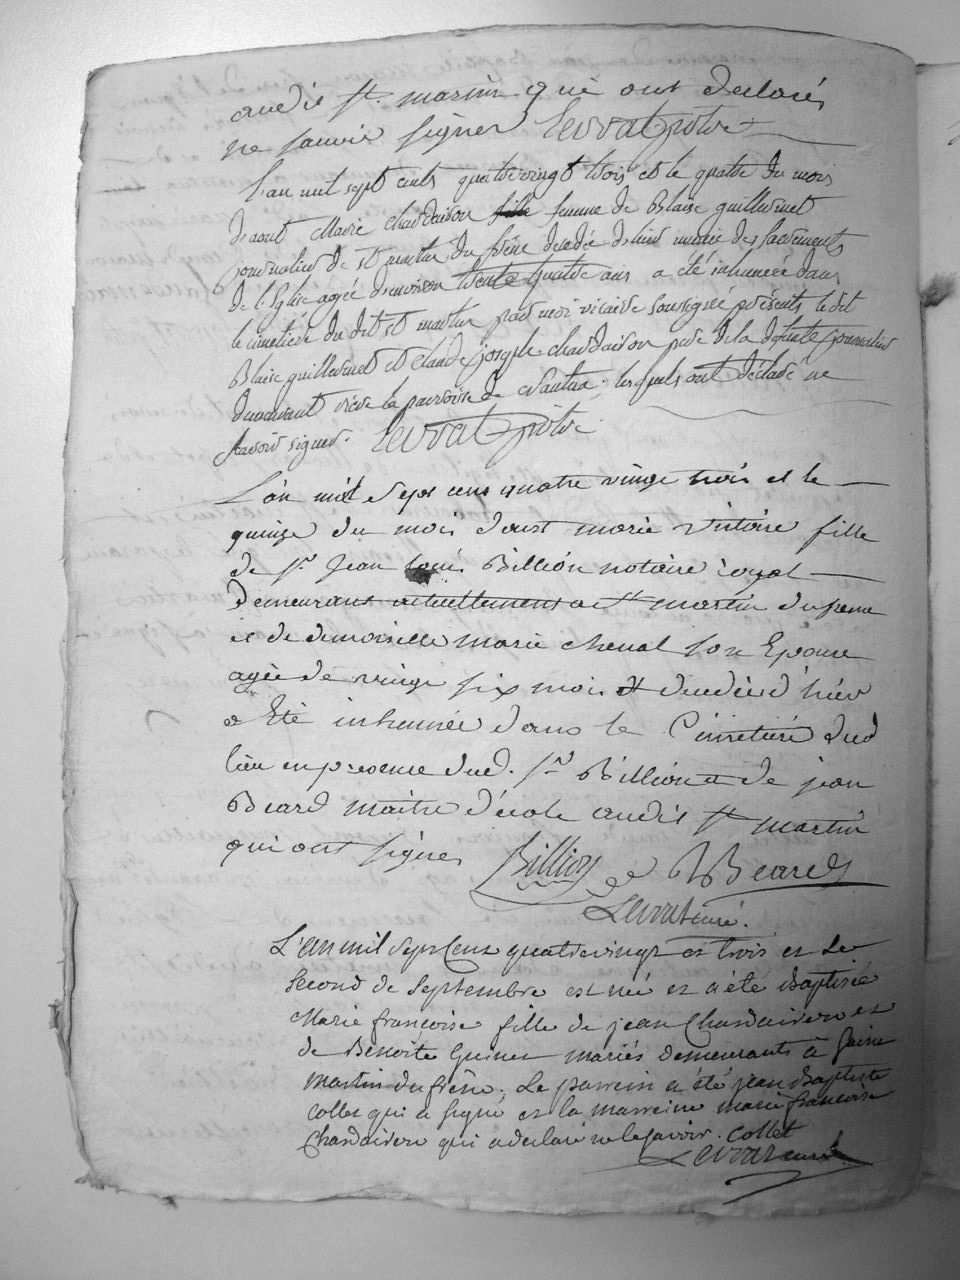 audit st. martin qui ont declarés
ne savoir signer Levrat ptre
L'an mil sept cents quatrevingt trois et le quatre du mois
de aout Marie chardaison fille femme de Blaise guillermet
journalier de st martin du frêne decedée de hier munie des sacrements
de l'Eglise agée d'environ trente quatre ans a été inhumée dans
le cimetière du dit st martin par moi vicaire soussigné présents le dit
Blaise guillermet et claude joseph chardaison père de la defunte journalier
demeurant rière la parroisse de lesquels ont déclaré ne
savoir signer. Levrat ptre
L'an mil sept cens quatre vingt trois et le
quinze du mois d'aoust marie victoire fille
de sr. jean louis Billion notaire royal
demeurans actuellement a st martin du frene
et de demoiselle marie chenal son Epouse
agée de vingt six mois et decedée d'hier
a Eté inhumée dans le Cimetière dud
lieu en presence dud. sr Billion et de jean
Beard maitre d'école audit st martin
qui ont signés Billion JBeard
Levrat curé.
L'an mil sept Cent quatrevingt et trois et le
second de septembre est née et a été Baptisée
Marie francoise fille de jean Chardaison et
de Benoite Guinet mariés demeurants à saint
martin du frêne. Le parrein a été jean Baptiste
collet qui a signé et la marreine marie francoise
Chardaison qui a declaré ne le savoir. Collet
Levrat curé